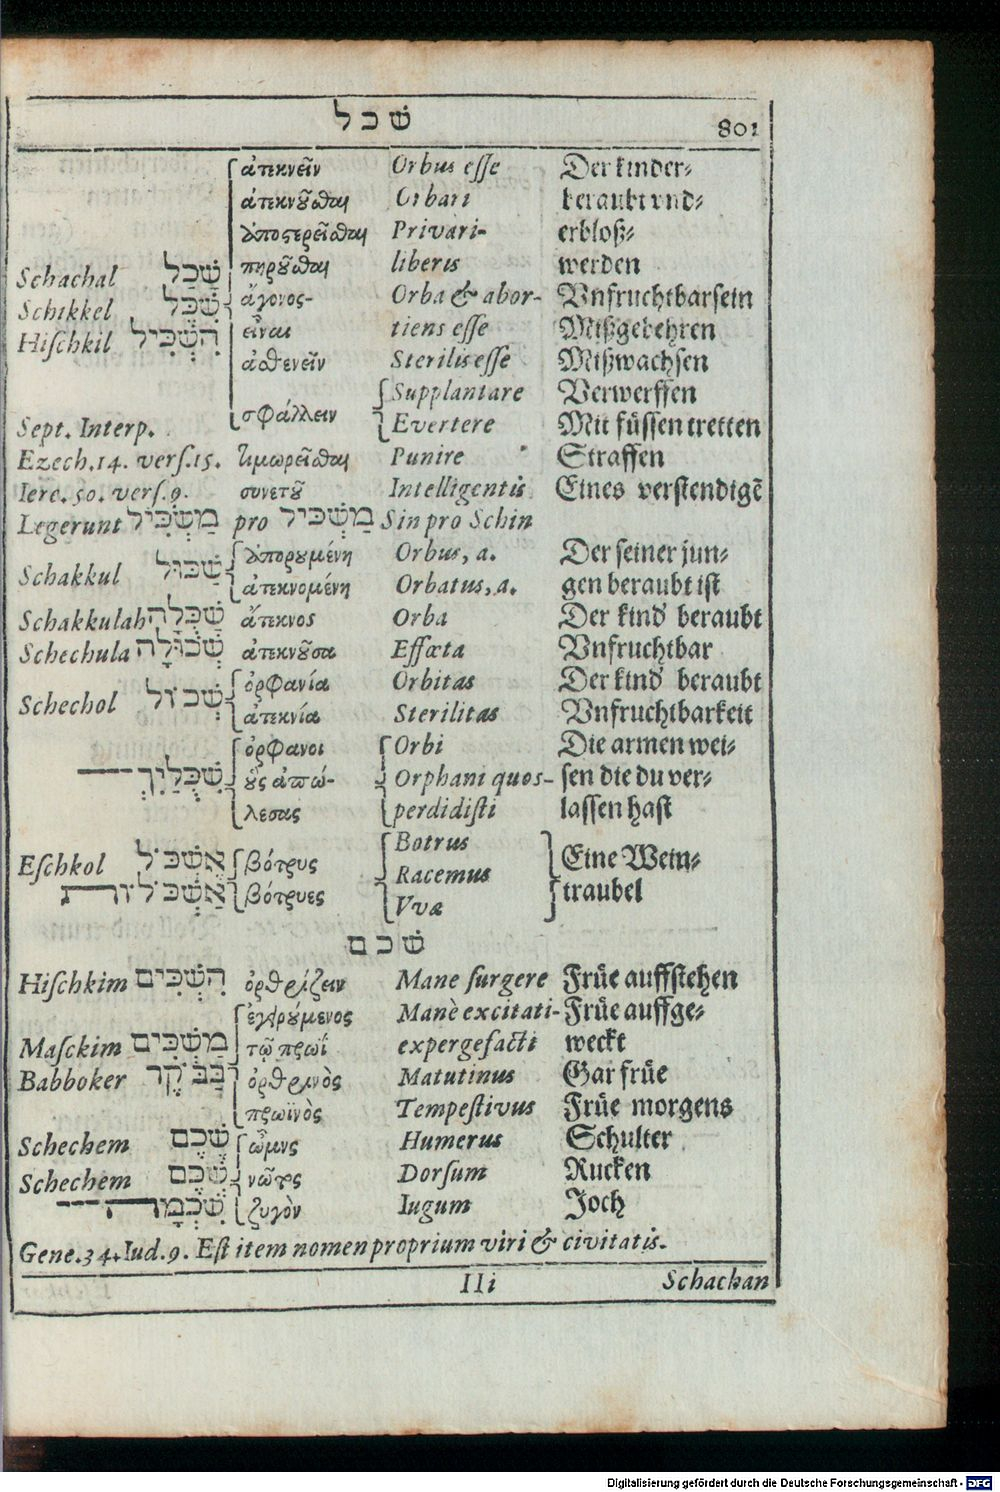 שׁ כ ל 801
ἀτεκνεῖν Orbus esse Der kinder-
ἀτεκνοῦσθαι Orbari beraubt vnd-
ἀποστερεῖσθαι Privari- erbloß-
Schachal שָׁכַל πηροῦσθαι liberis werden
Schikkel שִׁכֵּל ἄγονος- Orba & abor- Vnfruchtbarsein
Hischkil הִשְׁכִּיל εἶναι tiens esse Mißgebehren
ἀσθενεῖν Sterilis esse Mißwachsen
σφάλλειν Supplantare Verwerffen
Sept. Interp. Evertere Mit füssen tretten
Ezech.14. vers.15. τιμωρεῖσθαι Punire Straffen
Iere. 50. vers.9. συνετοῦ Intelligentis Eines verstendigē
Legerunt מַשְׂכִּיל pro מַשְׁכִּיל Sin pro Schin
Schakkul שַׁכּוּל ἀπορουμένη Orbus, a. Der seiner jun-
ἀτεκνομένη Orbatus, a. gen beraubt ist
Schakkulah שַׁכֻּלָה ἄτεκνος Orba Der kind beraubt
Schechula שְׁכוּלָה ἀτεκνοῦσα Effœta Vnfruchtbar
Schechol שְׁכוֹל ὀρφανία Orbitas Der kind beraubt
ἀτεκνία Sterilitas Vnfruchtbarkeit
ὀρφανοι Orbi Die armen wei-
שִׁכֻּלַיִךְ οὓς ἀπώ- Orphani quos- sen die du ver-
λεσας perdidisti lassen hast
Eschkol אֶשְׁכּוֹל βότρυς Botrus Eine Wein-
אַשְׁכֹּלוֹת βότρυες Racemus traubel
Vvæ
שׁ כ ם
Hischkim הִשְׁכִּים ὀρθρίζειν Mane surgere Früe auffstehen
ἐγρούμενος Manè excitati- Früe auffge-
Masckim מַשְׁכִּים τῷ πρωΐ expergefacti weckt
Babboker בַּבֹּקֶר ὀρθρινὸς Matutinus Gar früe
πρωϊνὸς Tempestivus Früe morgens
Schechem שְׁכֶם ὦμος Humerus Schulter
Schechem שֶׁכֶם νῶτος Dorsum Rucken
שִׁכְמָה ζυγὸν Iugum Joch
Gene.34. Iud.9. Est item nomen proprium viri & civitatis.
IIi Schachan
Digitalisierung gefördert durch die Deutsche Forschungsgemeinschaft - DFG